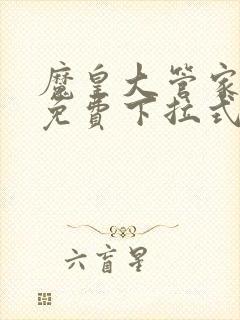 魔皇大管家
免費下拉式
六盲星